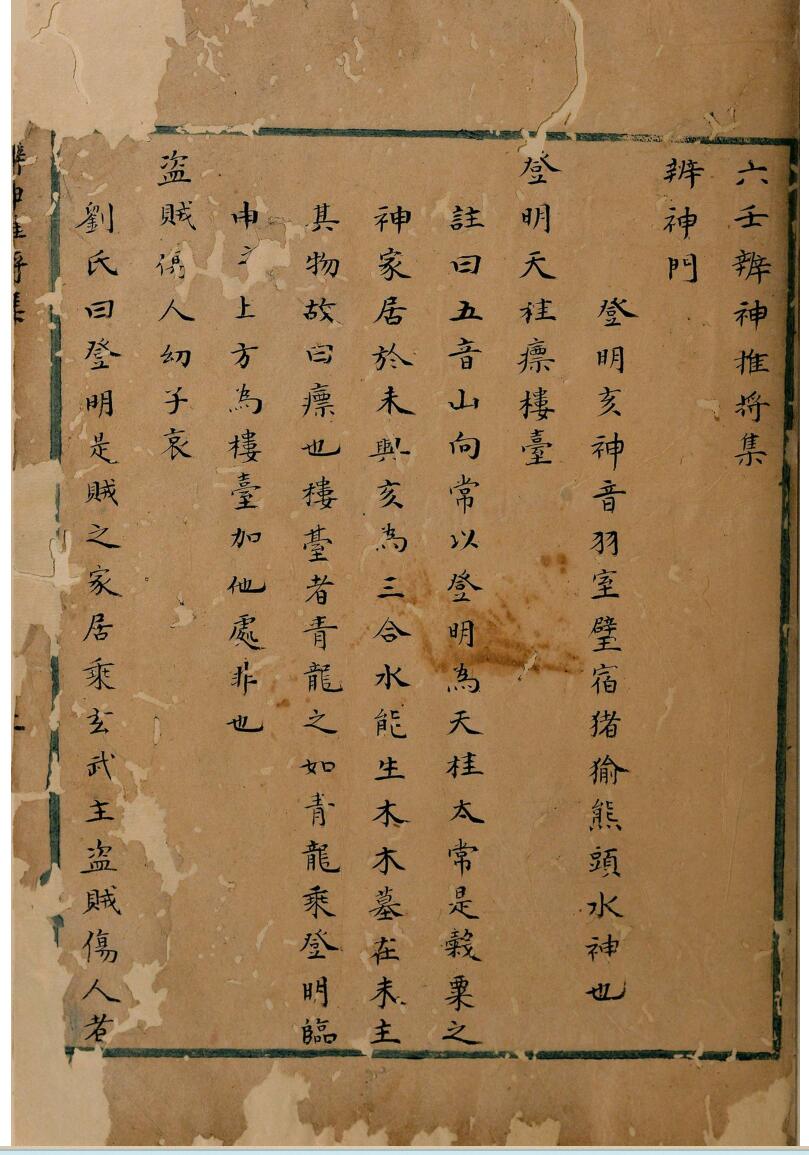 六壬辨神推將集
辨神門
登明亥神音羽室璧宿猪㺄熊頭水神也
登明天桂廪樓臺
註曰五音山向常以登明為天桂太常是穀粟之
神家居於未與亥為三合水能生木木墓在未主
其物故曰廪也樓臺者青龍之如青龍乘登明臨
申之上方為樓臺加他處非也
盗賊傷人幼子哀
劉氏曰登明是賊之家居乘玄武主盗賊傷人若
辨神推將集